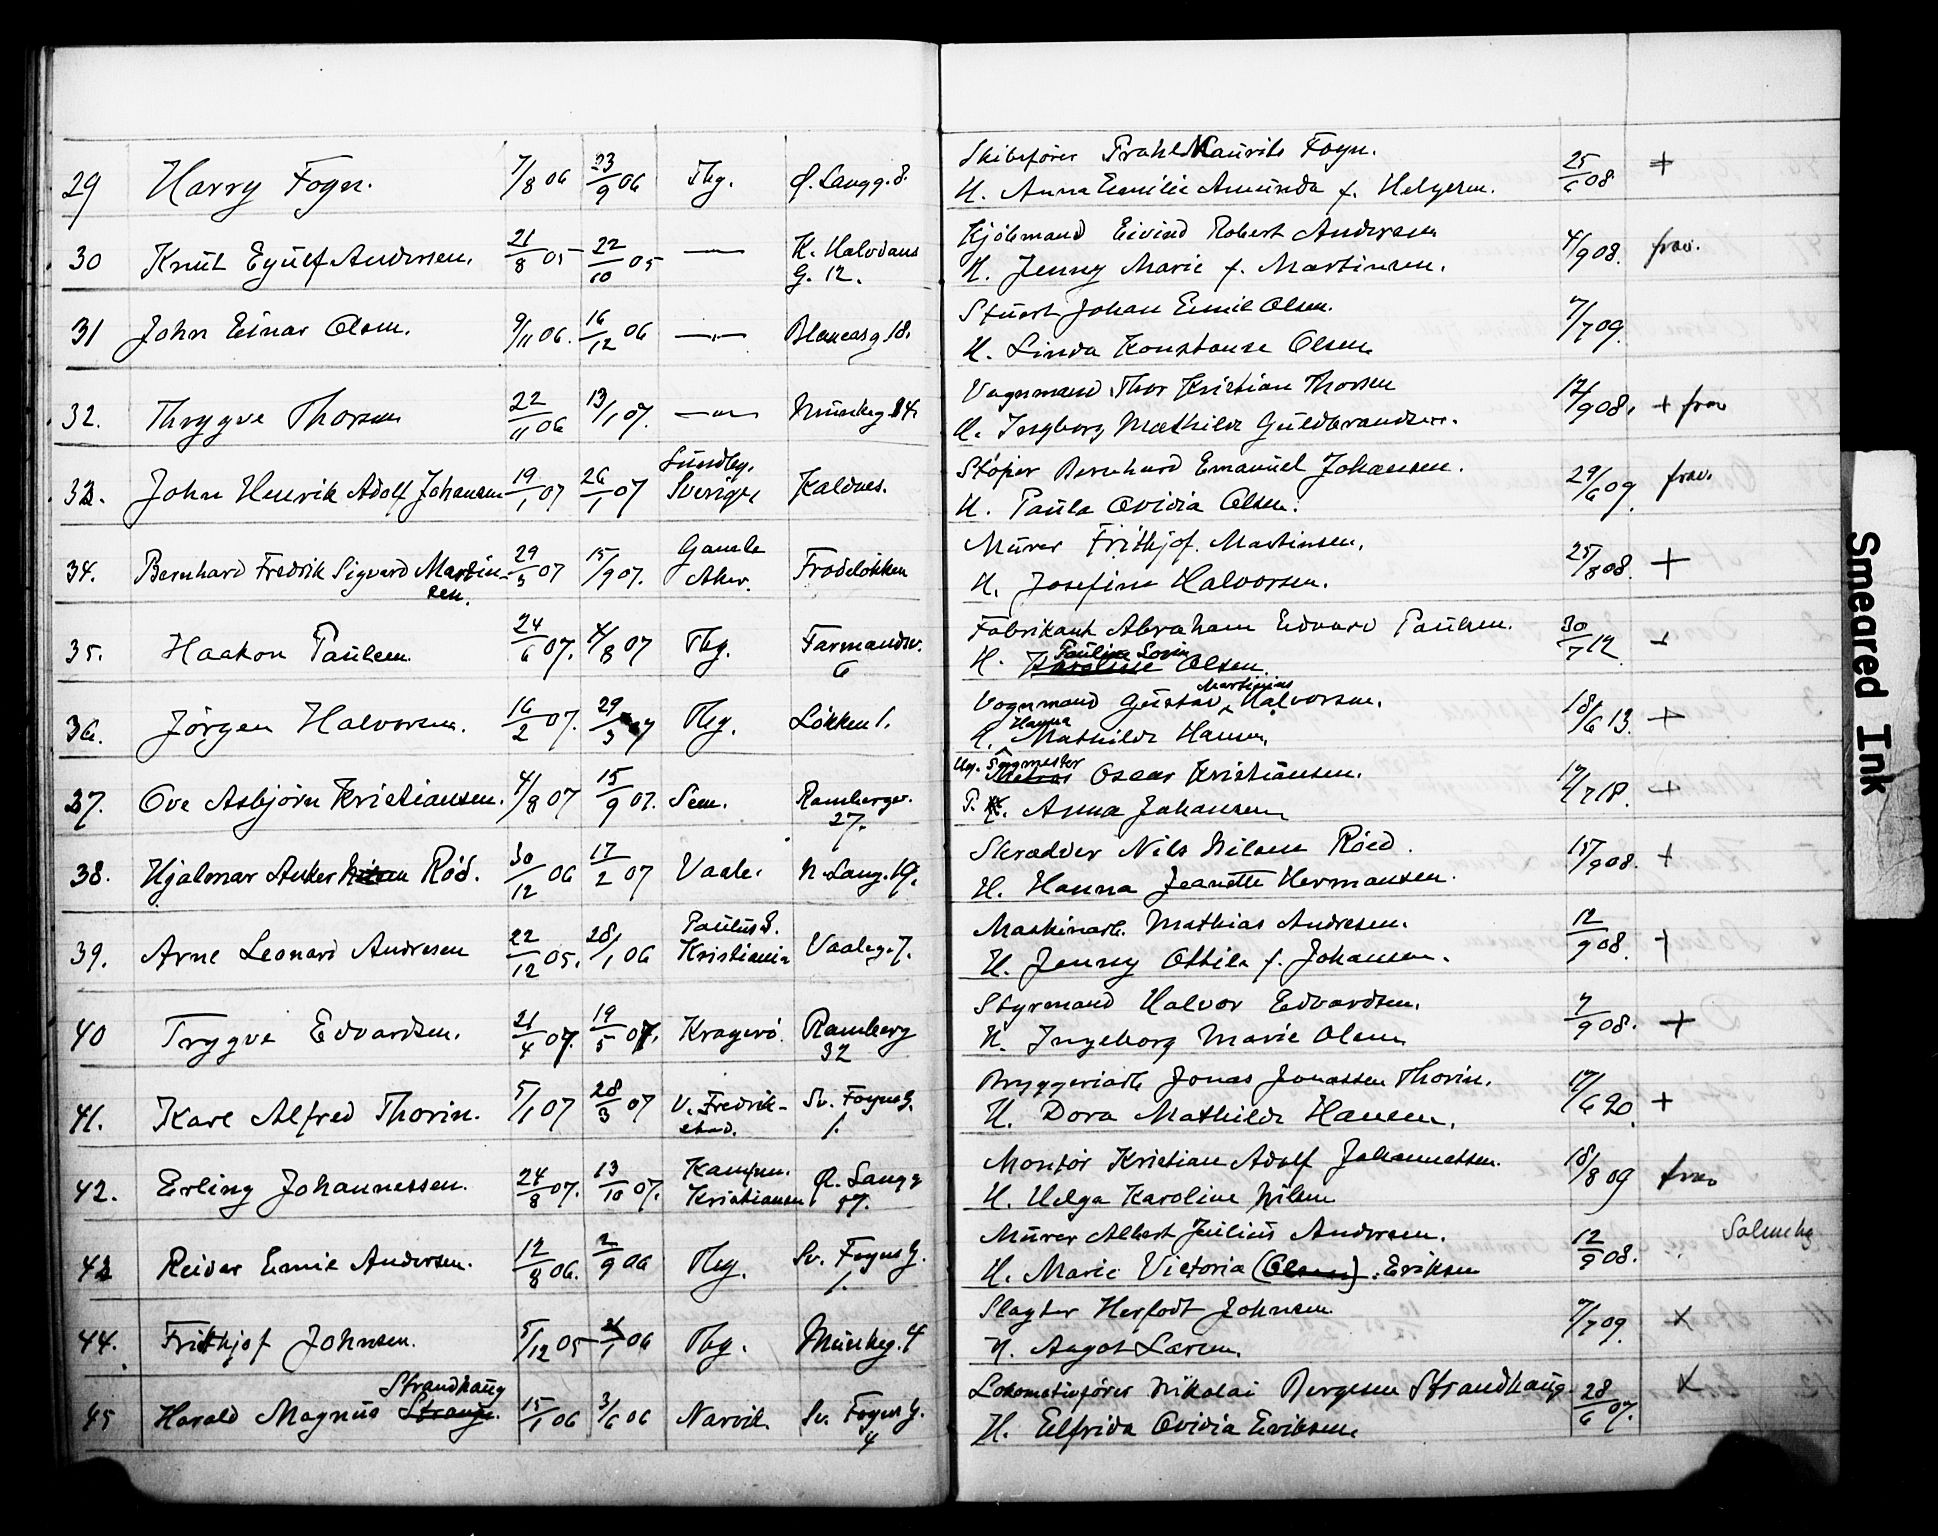 29 Harry Fogn. 7/8 06 23/9 06 Tbg. Ø. Langg. 8. Skibsfører Prahl Maurits Fogn. 25/6 08 +
H. Anna Emilie Amunda f. Helgesen.
30 Knut Eyulf Andersen. 21/8 05 22/10 05 — K. Halvdans G. 12. Kjøbmand Eivind Robert Andersen 4/9 08. frav.
H. Jenny Marie f. Martinsen.
31 John Einar Olsen. 9/11 06. 16/12 06 — 18. Stuert Johan Emil Olsen. 7/7 09.
H. Linda Konstanse Olsen
32. Thrygve Thorsen 22/11 06 13/1 07. — Munkeg. 34. Vognmand Thor Kristian Thorsen 17/9 08. + frav
H. Ingborg Mathilde Guldbrandsen.
33. John Henrik Adolf Johansen 19/1 07 26/1 07 Sundby. Sverige Kaldnes. Støper Bernhard Emanuel Johansen. 29/6 09. frav.
H. Paula Ovidia Olsen.
34. Bernhard Fredrik Sigvard Martinsen. 29/3 07 15/9 07. Gamle Aker. Frodeløkken Murer Frithjof Martinsen. 25/8 08. +
H. Josefine Halvorsen.
35. Haakon Paulsen. 24/6 07. 4/8 07 Tbg. Farmandsv. 6 Fabrikant Abraham Edvard Paulsen. 30/7 12 +
H. Karoline Pauline Lovin Olsen.
36. Jørgen Halvorsen. 16/2 07. 29/3 07 Tbg. Løkken 1. Vognmand Gustav Martinius Halvorsen. 18/6 13. +
H. Hanna Mathilde Hansen.
37. Ove Asbjørn Kristiansen. 4/8 07 15/9 07. Sem. Rambergv. 27. Ug. Sagmester Oscar Kristiansen. 17/7 18. +
P. Anna Johansen
38. Hjalmar Anker Nilsen Röd. 30/12 06 17/2 07 Vaale. N. Langg. 19. Skrædder Nils Nilsen Röed. 15/9 08. +
H. Hanna Jeanette Hermansen.
39. Arne Leonard Andresen 22/12 05. 28/1 06 Paulus S. Kristiania Vaaleg. 7. Maskinarb. Mathias Andresen. 12/9 08. +
H. Jenny Ottile f. Johansen.
40 Trygve Edvardsen. 21/4 07. 19/5 07. Kragerö Ramberg 32 Styrmand Halvor Edvardsen. 7/9 08. +
H. Ingeborg Marie Olsen
41. Karl Alfred Thorin. 5/1 07 28/3 07 V. Fredrikstad. Sv. Foyns G. 1. Bryggeriarb. Jonas Jonassen Thorin. 17/6 20. +
H. Dora Mathilde Hansen.
42. Erling Johannessen. 24/8 07. 13/10 07. Kampen. Ø. Langg 57. Montör Kristian Adolf Johannessen. 18/8 09 frav
H. Helga Karoline Nilsen
43 Reidar Emil Andersen. 12/8 06. 2/9 06 Tbg. Sv. Foyns G. 1. Murer Albert Julius Andersen. 12/9 08. Solmehg
H. Marie Victoria (Olsen). Eriksen
44. Frithjof Johnsen. 5/12 05 1/1 06 Tbg. Munkeg. 4 Slagter Herlodt Johnsen 7/7 09. x
H. Aagot Larsen.
45 Harald Magnus Strandhaug 15/1 06 3/6 06 Narvik Sv. Foyns G. 4 Lokomotivfører Nikolai Bergesen Strandhaug 28/6 07. x
H. Elfrida Ovidia Eriksen
Smeared Ink